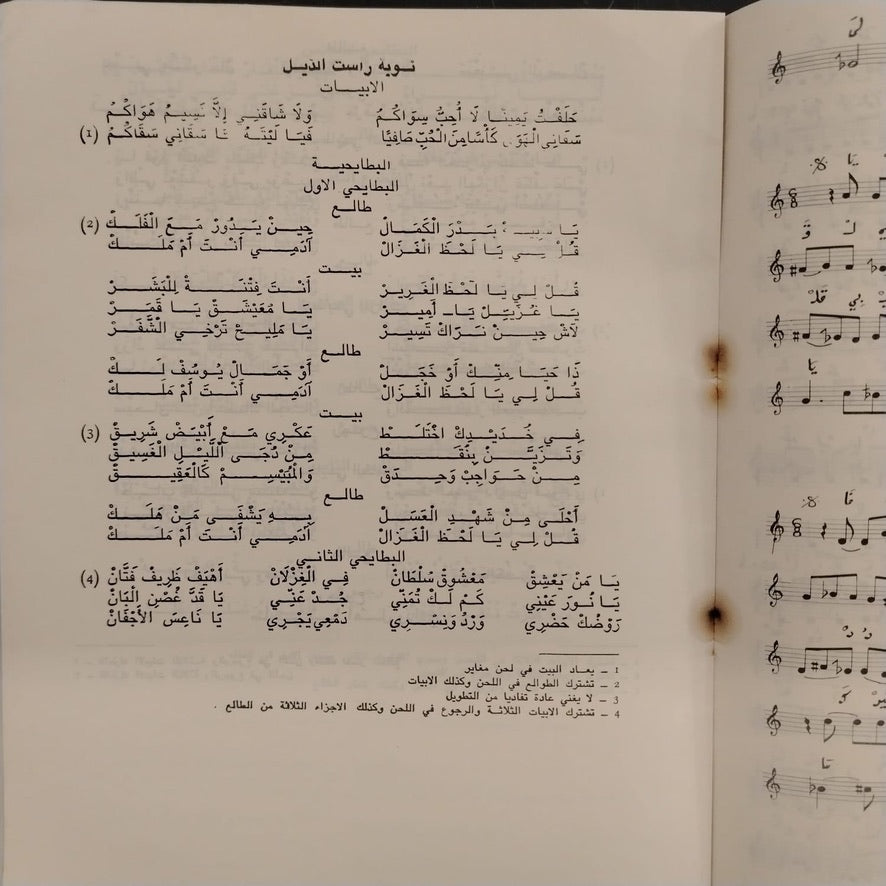 نوبة راست الذيل
الابيات
حَلَفْتُ يَمِينًا لَا أُحِبُّ سِوَاكُمُ وَلَا شَاقَنِي إِلَّا نَسِيمُ هَوَاكُمُ
سَقَانِي الْهَوَى كَأْسًا مِنَ الْحُبِّ صَافِيًا فَيَا لَيْتَهُ سَقَانِي سَقَاكُمُ (1)
البطايحية
البطايحي الاول
طالع
يَا بَدْرَ الْكَمَالْ حِينْ يَدُورْ مَعَ الْفَلَكْ (2)
قُلْ لِي يَا لَحْظَ الْغَزَالْ آدَمِي أَنْتَ أَمْ مَلَكْ
بيت
قُلْ لِي يَا لَحْظَ الْغَرِيرْ أَنْتَ فِتْنَةْ لِلْبَشَرْ
يَا غُزَيَّلْ يَا أَمِيرْ يَا مُعَيْشَقْ يَا قَمَرْ
لَاشْ حِينْ نَرَاكْ تَسِيرْ يَا مَلِيحْ تَرْخِي الشَّفَرْ
طالع
ذَا حَيَا مِنِّكْ أَوْ خَجَلْ أَوْ جَمَالْ يُوسُفْ لَكْ
قُلْ لِي يَا لَحْظَ الْغَزَالْ آدَمِي أَنْتَ أَمْ مَلَكْ
بيت
فِي خُدَيْدِكْ اخْتَلَطْ عَكْرِي مَعْ أَبْيَضْ شَرِيقْ (3)
وَتَزَيَّنْ بِنُقَطْ مِنْ دُجَى اللَّيْلِ الْغَسِيقْ
مِنْ حَوَاجِبْ وَحِدَقْ وَالْمُبَيْسِمْ كَالْعَقِيقْ
طالع
أَحْلَى مِنْ شَهْدِ الْعَسَلْ بِهِ يَشْفَى مَنْ هَلَكْ
قُلْ لِي يَا لَحْظَ الْغَزَالْ آدَمِي أَنْتَ أَمْ مَلَكْ
البطايحي الثاني
يَا مَنْ يَعْشِقْ مَعْشُوقْ سُلْطَانْ فِي الْغِزْلَانْ أَهْيَفْ ظَرِيفْ فَتَّانْ (4)
يَا نُورَ عَيْنِي كَمْ لَكْ تُمَنِّي جُدْ عَنِّي يَا قَدَّ غُصْنِ الْبَانْ
رَوْضُكْ حَضْرِي وَرْدُ وَنِسْرِي دَمْعِي يَجْرِي يَا نَاعِسَ الْأَجْفَانْ
1 ــ يعاد البيت في لحن مغاير
2 ــ تشترك الطوالع في اللحن وكذلك الابيات
3 ــ لا يغني عادة تفاديا من التطويل
4 ــ تشترك الابيات الثلاثة والرجوع في اللحن وكذلك الاجزاء الثلاثة من الطالع .